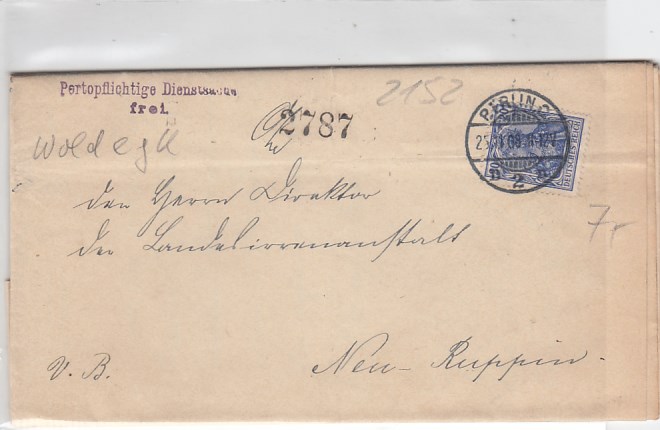 Portopflichtige Dienstsache
frei.
2152
2787
Woldegk
BERLIN C.
25. 1 08. 11-12V
2
DEUTSCHES REICH
den Herrn Direktor
der Landesirrenanstalt
7,-
V. B.
Neu-Ruppin.